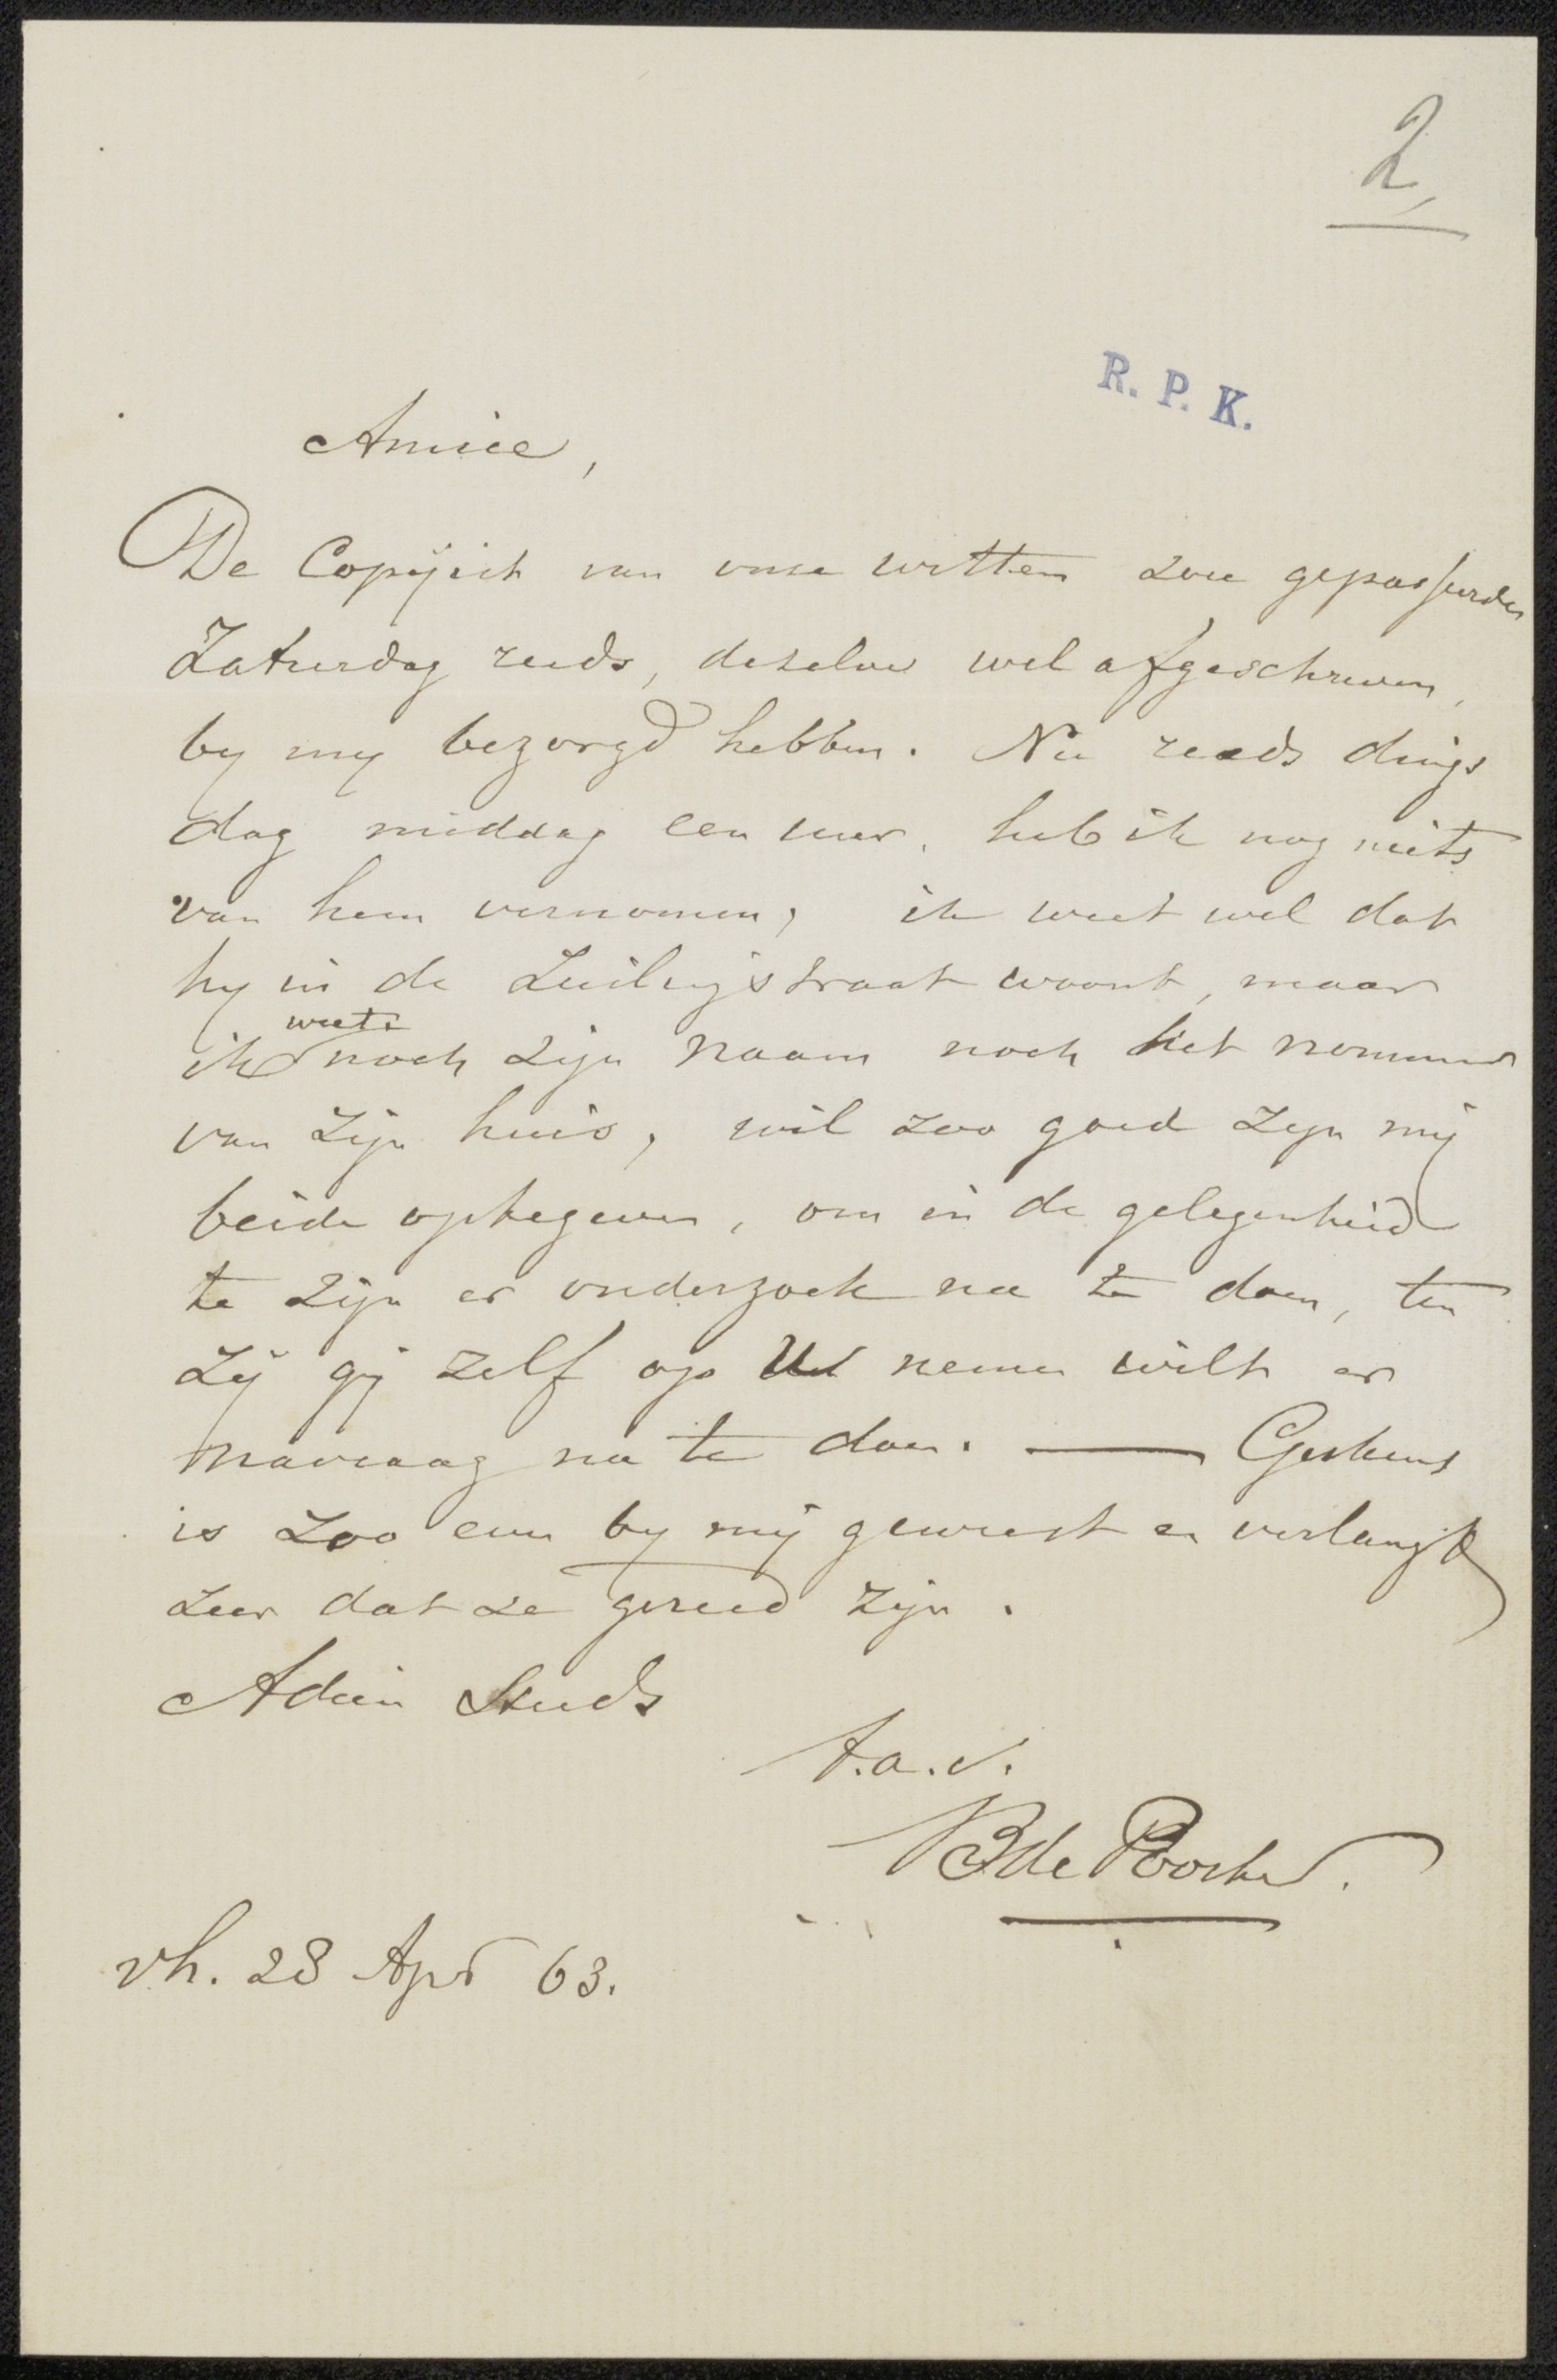 2
R. P. K.
Amice,
De Copijist van onze wetten zou gepasseerden
Zaturdag reeds, dezelve wel afgeschreven,
by my bezorgd hebben. Nu reeds dings
dag middag een uur, heb ik nog niets
van hem vernomen, ik weet wel dat
hy in de straat woont, maar
weet
ik noch zijn naam noch het nommer
van zijn huis, wil zoo goed zijn mij
beide optegeven, om in de gelegenheid
te zijn er onderzoek na te doen, ten
zij gij zelf op U nemen wilt er
navraag na te doen. —
is zoo even by mij geweest en verlangt
zeer dat ze gereed zijn.
Adieu Steeds
t.a.v.
B de Poorter.
vh. 28 Apr 63.